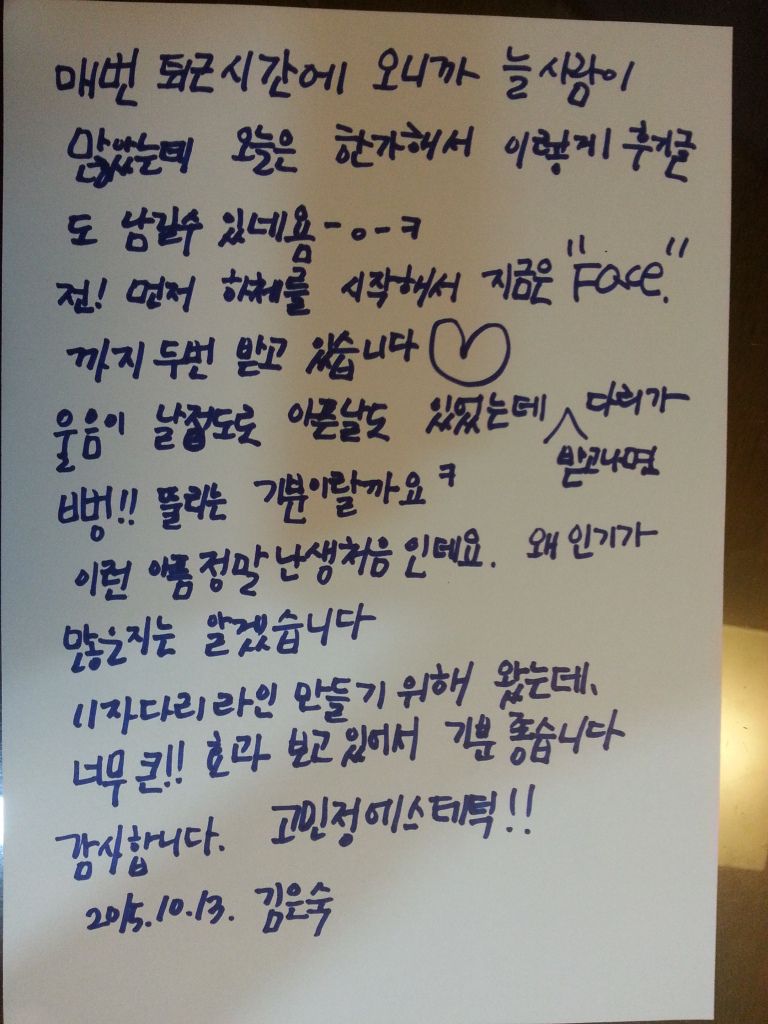 매번 퇴근시간에 오니까 늘 사람이
많았는데 오늘은 한가해서 이렇게 후기글
도 남길수 있네욤-ㅇ-ㅋ
전! 먼저 하체를 시작해서 지금은 "Face."
까지 두번 받고 있습니다♡
울음이 날정도로 아픈날도 있었는데 다리가
받고나면
뻥!! 뚤리는 기분이랄까요ㅋ
이런 아픔 정말 난생처음인데요. 왜 인기가
많은지는 알겠습니다
11자다리라인 만들기 위해 왔는데,
너무 큰!! 효과 보고 있어서 기분 좋습니다
감사합니다. 고민정에스테틱!!
2015.10.13. 김은숙